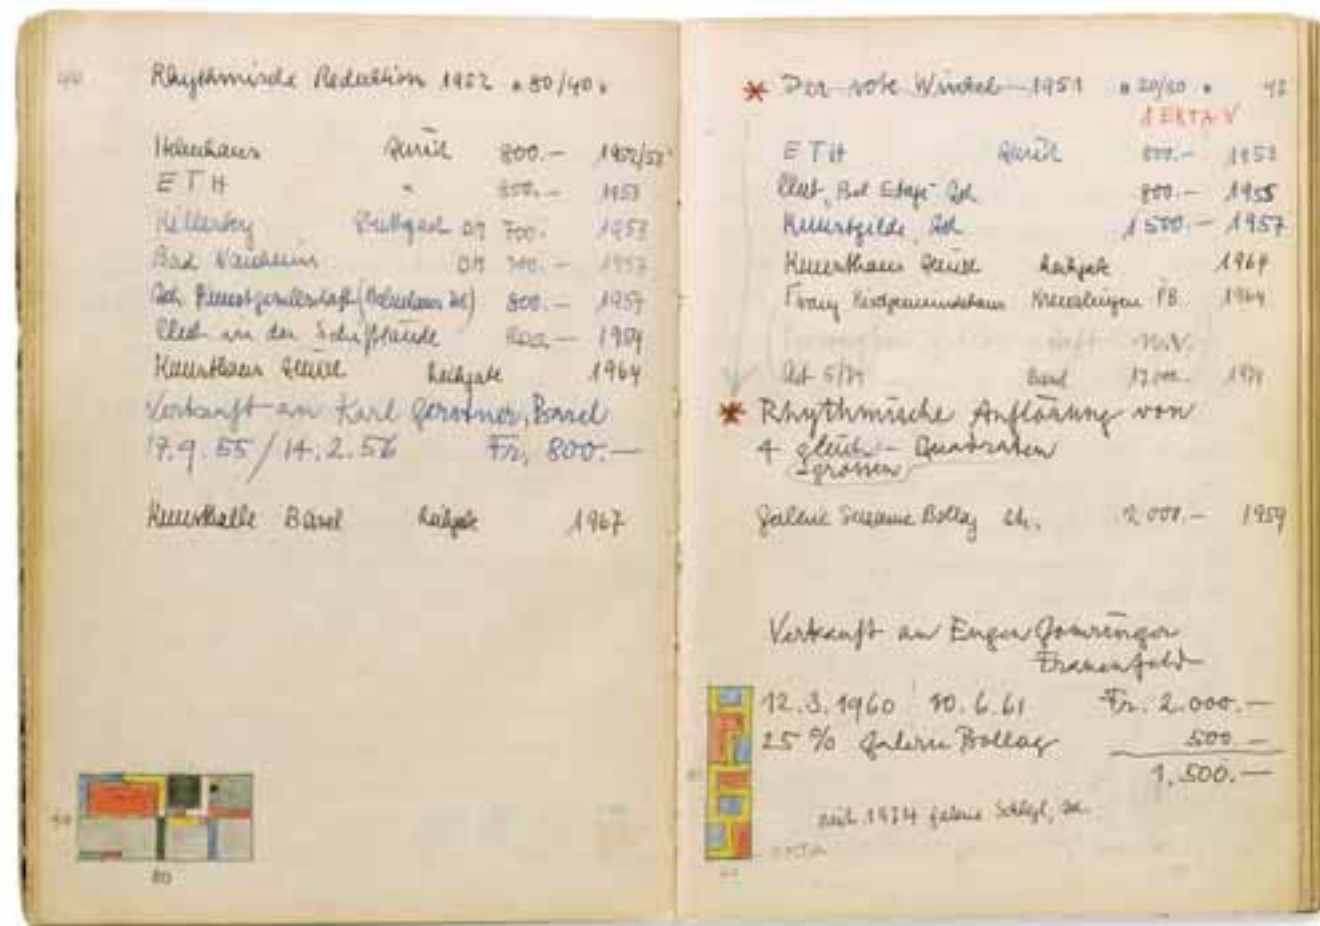 Rhythmische Reduktion 1952 • 80/40 •
Helmhaus Zürich 800.— 1952/53
ETH " 800.— 1953
Killesberg Stuttgart DM 700.- 1953
Bad Nauheim DM 700.— 1953
Zch. Kunstgesellschaft (Helmhaus Zch) 800.— 1957
Club in der Schifflände 800.— 1959
Kunsthaus Zürich Leihgabe 1964
Verkauft an Karl Gerstner, Basel
17.9.55 / 14.2.56 Fr. 800.—
Kunsthalle Basel Leihgabe 1967
40
80
* Der rote Winkel 1951 • 20/80 • 42
1 EKTA-V
ETH Zürich 800.— 1953
Club, Bel Etage Zch 800.— 1955
Kunstgilde, Zch. 1500.— 1957
Kunsthaus Zürich Leihgabe 1964
Evang Kirchgemeindehaus Kreuzlingen PB. 1964
Art 5/74 Basel 17000.- 1974
* Rhythmische Auflösung von
4 gleich- Quadraten
grossen
Galerie Suzanne Bollag Zch. 2000.— 1959
Verkauft an Eugen Gomringer
Frauenfeld
12.3.1960 10.6.61 Fr. 2.000.—
25% Galerie Bollag 500.—
1.500.—
seit 1974 Galerie Schlégl, Zch.
EKTA